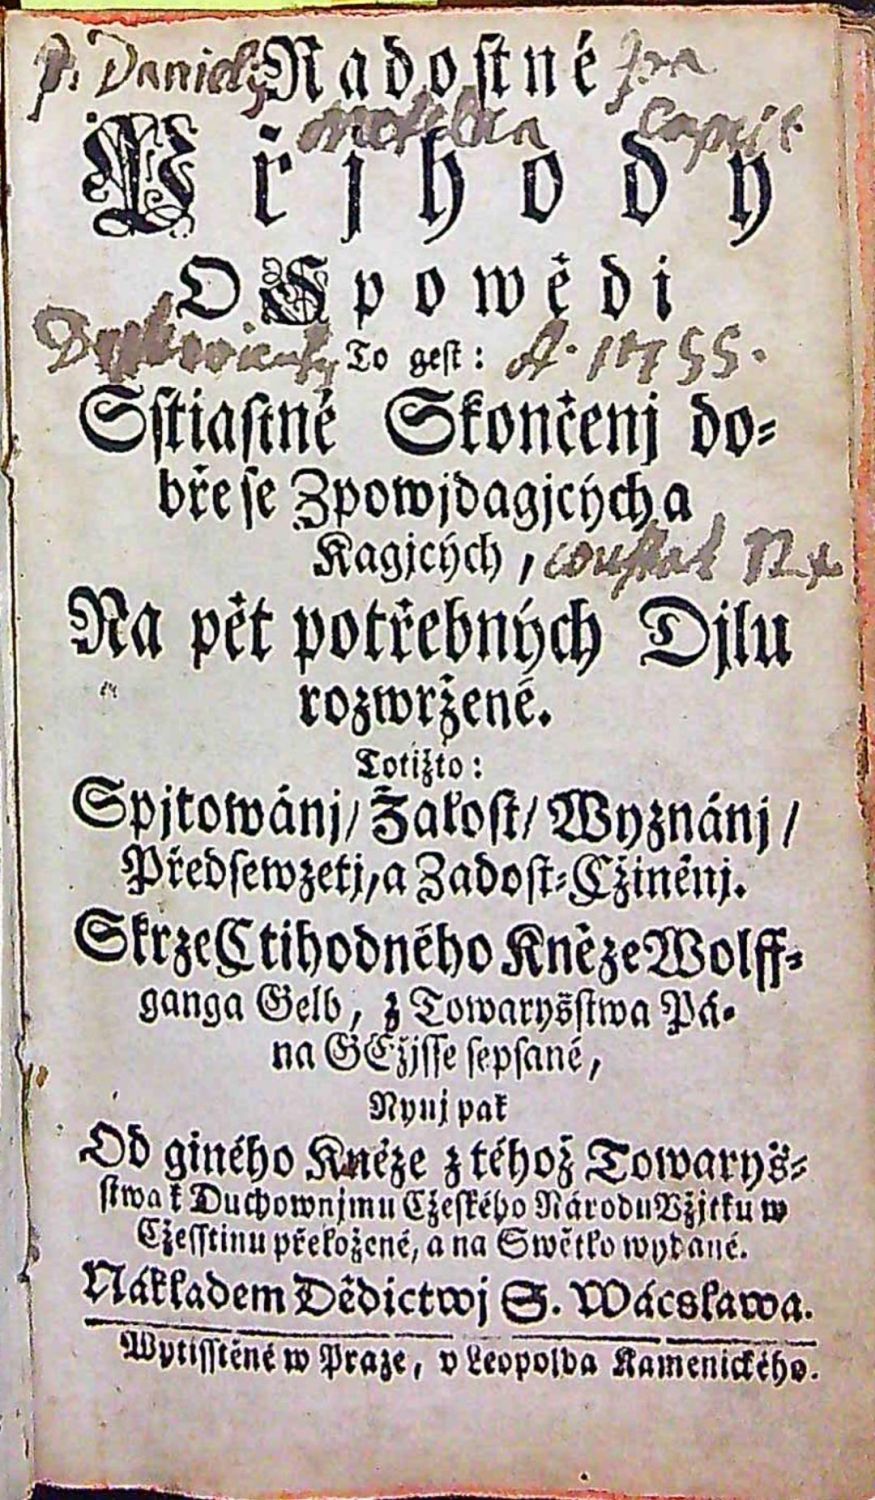 P. Daniel Radostné
Přjhody
O Spowědi
To gest: A. 1755.
Sstiastné Skončenj do⸗
bře se Zpowjdagjcých a
Kagjcých,
Na pět potřebných Djlu
rozwržené.
Totižto:
Spjtowánj/ Žalost/ Wyznánj/
Předsewzetj, a Zadost⸗Cžiněnj.
Skrze Ctihodného Kněze Wolff⸗
ganga Gelb, z Towaryšstwa Pá⸗
na GEžjsse sepsané,
Nynj pak
Od giného Kněze z téhož Towaryš⸗
stwa k Duchownjmu Cžeského Národu Vžjtku w
Cžesstinu přeložené, a na Swětlo wydané.
Nákladem Dědictwj S. Wácslawa.
Wytisstěné w Praze, v Leopolda Kamenického.